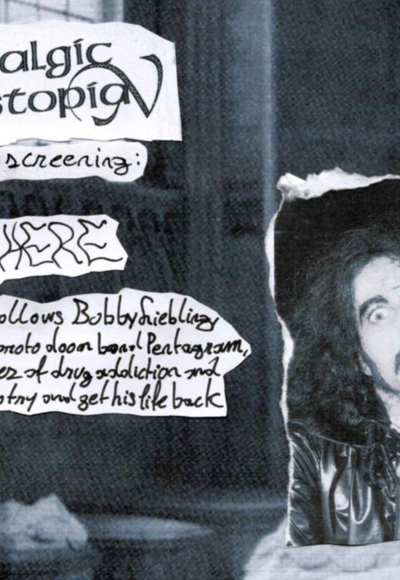 algic
stopia
screening:
HERE
ollows Bobby Liebling,
proto doom band Pentagram,
es of drug addiction and
try and get his life back